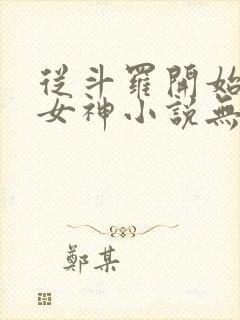 從斗羅開始
女神小說無
鄭某